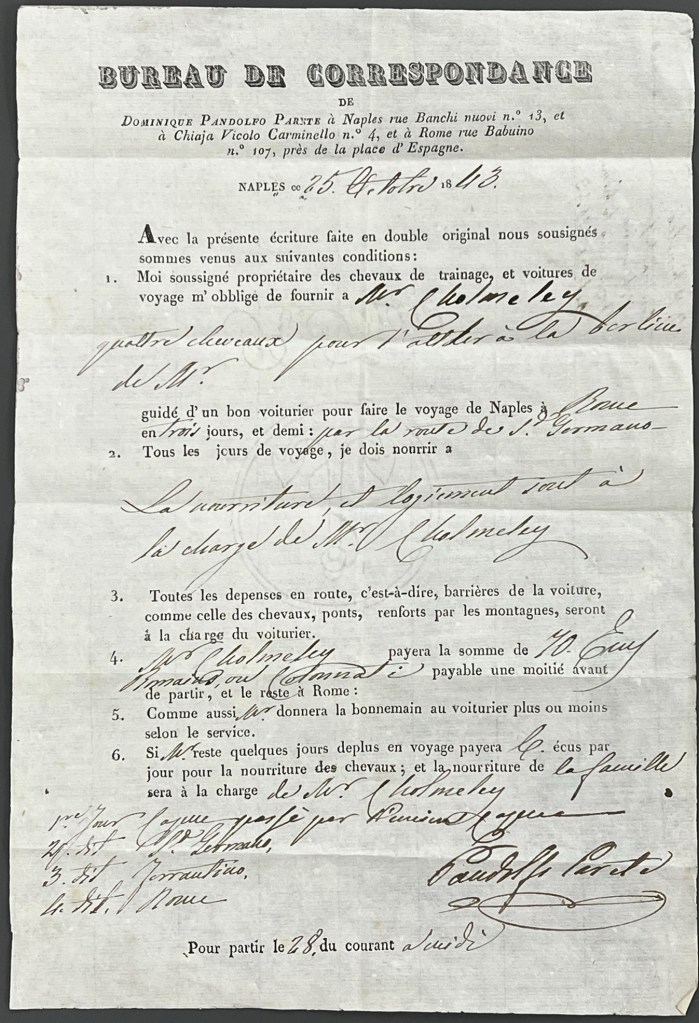 BUREAU DE CORRESPONDANCE
DE
DOMINIQUE PANDOLFO PARETE à Naples rue Banchi nuovi n.º 13, et
à Chiaja Vicolo Carminello n.º 4, et à Rome rue Babuino
n.º 107, près de la place d'Espagne.
NAPLES ce 25. Octobre 1843.
Avec la présente écriture faite en double original nous sousignés
sommes venus aux suivantes conditions:
1. Moi soussigné propriétaire des chevaux de trainage, et voitures de
voyage m'obblige de fournir a Mr. Cholmeley
quattre chevaux pour l'atteler à la berline
de Mr.
guidé d'un bon voiturier pour faire le voyage de Naples à Rome
en trois jours, et demi: par la route de St. Germano
2. Tous les jours de voyage, je dois nourrir a
La nourriture, et logiement sont à
la charge de Mr. Cholmeley
3. Toutes les depenses en route, c'est-à-dire, barrières de la voiture,
comme celle des chevaux, ponts, renforts par les montagnes, seront
à la charge du voiturier.
4. Mr. Cholmeley payera la somme de 70. Ecus
Romains, ou Colonnati payable une moitié avant
de partir, et le reste à Rome:
5. Comme aussi Mr. donnera la bonnemain au voiturier plus ou moins
selon le service.
6. Si Mr. reste quelques jours deplus en voyage payera 6. écus par
jour pour la nourriture des chevaux; et la nourriture de la famille
sera à la charge de Mr. Cholmeley
1re Jour Capue passé par
2. dit St. Germano,
3. dit Ferrantino,
4. dit. Rome
Pandolfo Parete
Pour partir le 28, du courant a midi